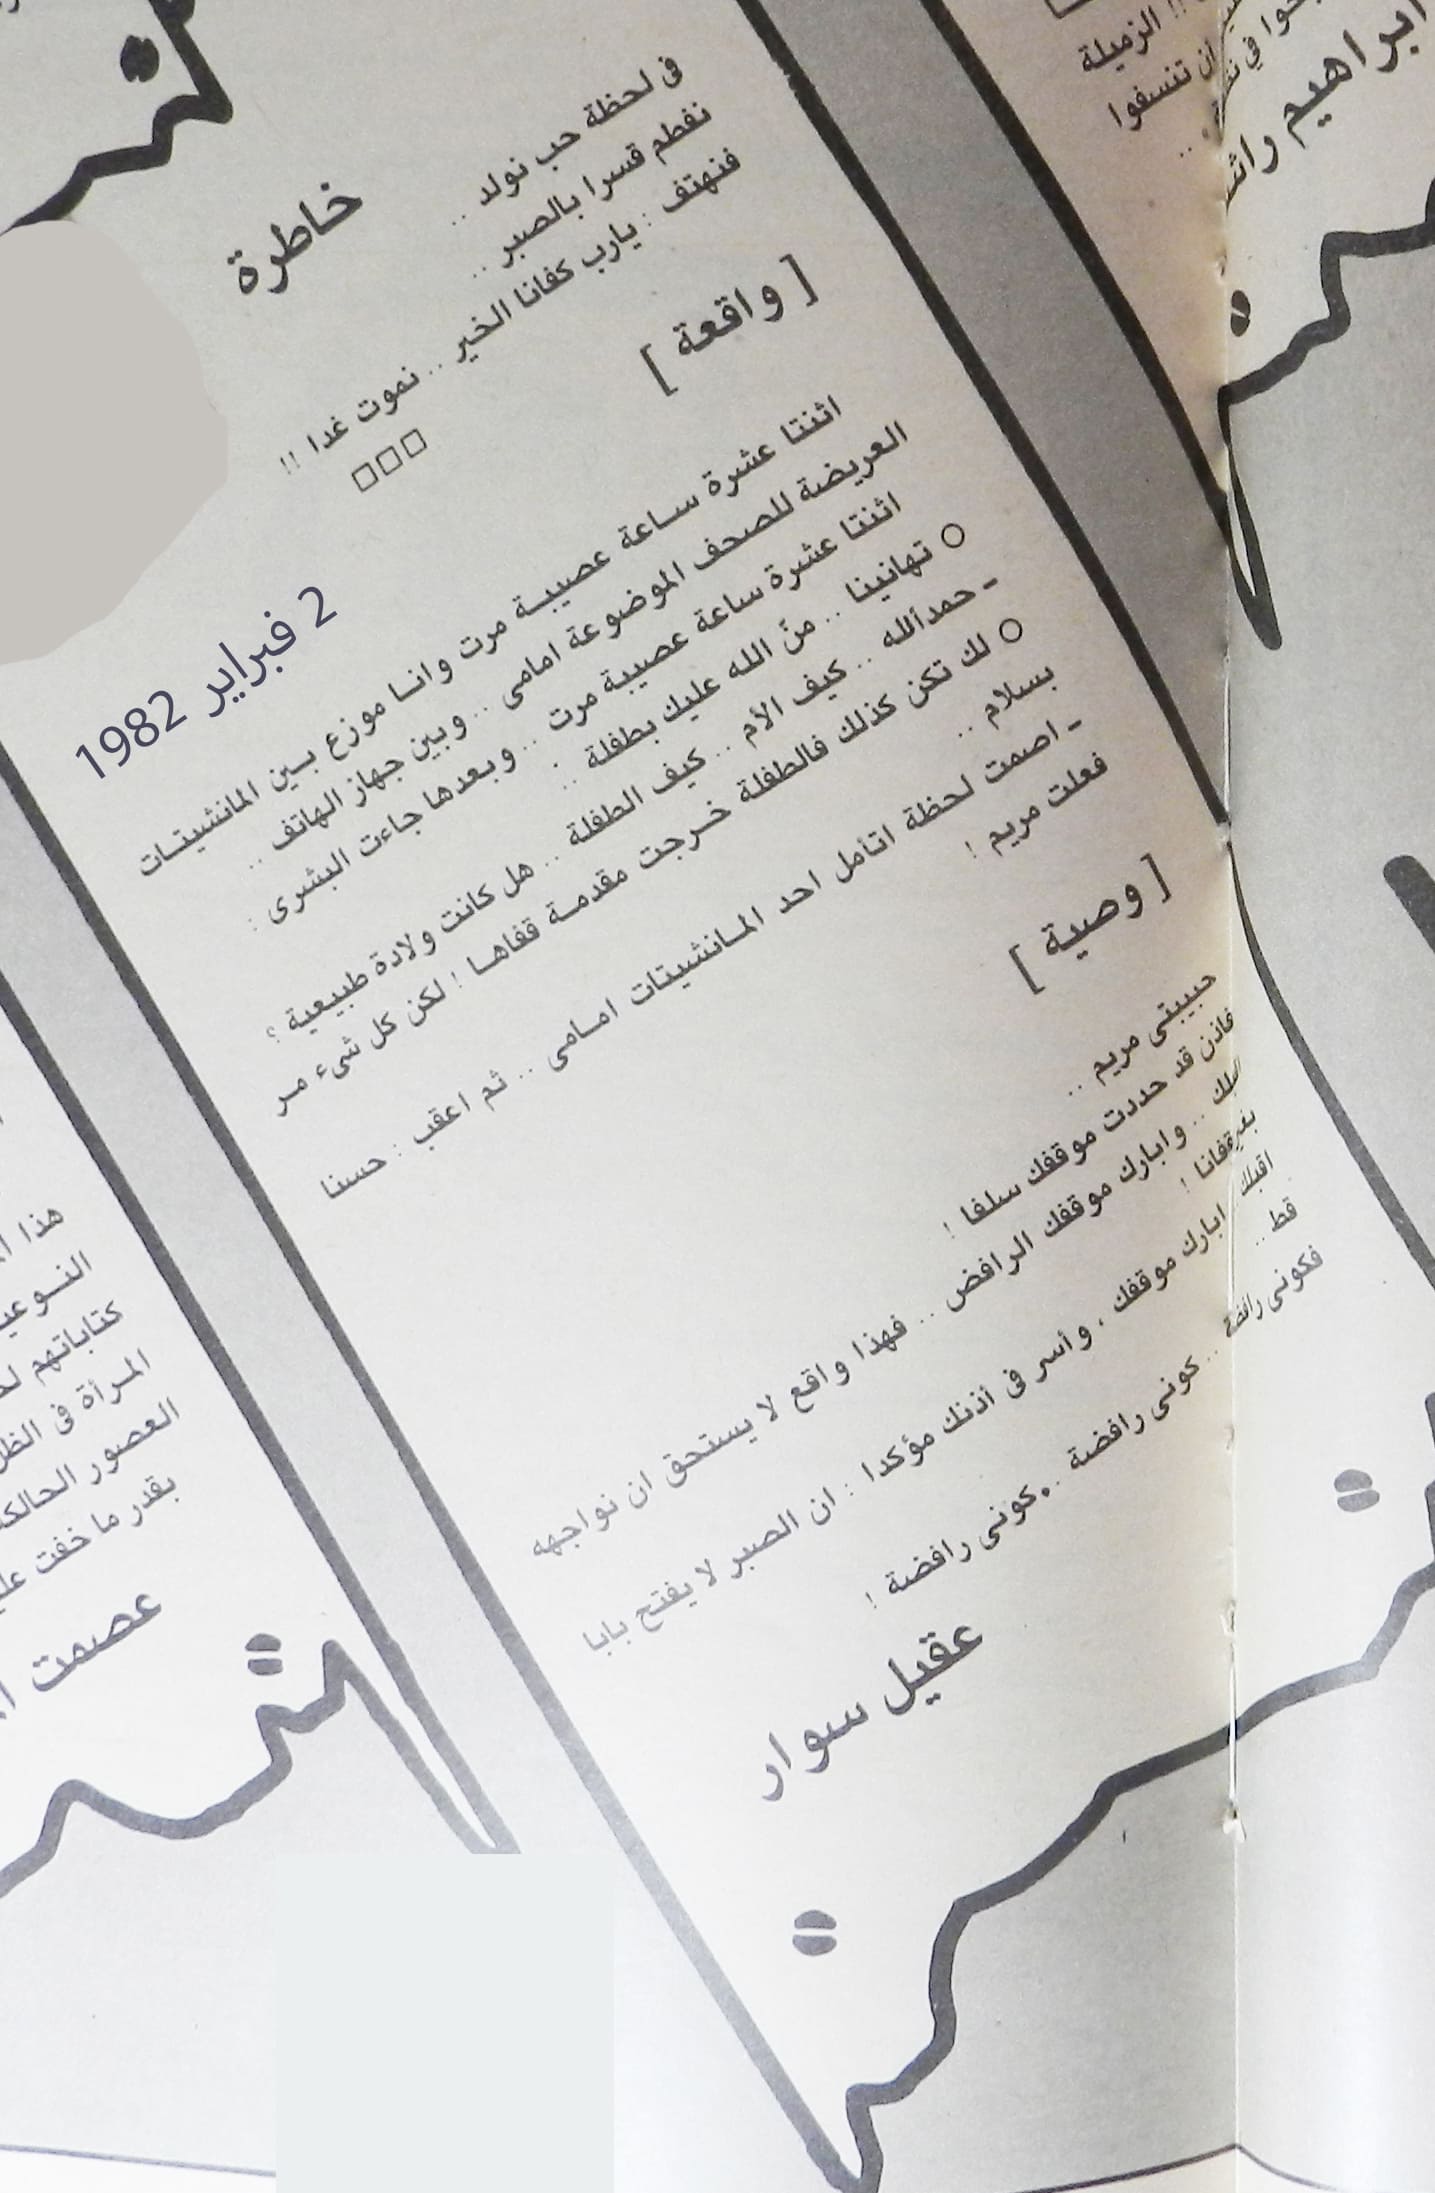 خاطرة
فى لحظة حب نولد ..
نفطم قسرا بالصبر ..
فنهتف : يارب كفانا الخير .. نموت غدا !!
□□□
2 فبراير 1982
[ واقعة ]
اثنتا عشرة ساعة عصيبة مرت وانا موزع بين المانشيتات
العريضة للصحف الموضوعة امامى .. وبين جهاز الهاتف ..
اثنتا عشرة ساعة عصيبة مرت .. وبعدها جاءت البشرى :
○ تهانينا .. منّ الله عليك بطفلة ..
- حمدألله .. كيف الأم .. كيف الطفلة .. هل كانت ولادة طبيعية ؟
○ لك تكن كذلك فالطفلة خرجت مقدمة قفاها ! لكن كل شىء مر
بسلام ..
- اصمت لحظة اتأمل احد المانشيتات امامى .. ثم اعقب : حسنا
فعلت مريم !
[ وصية ]
حبيبتى مريم ..
قد حددت موقفك سلفا !
.. وابارك موقفك الرافض .. فهذا واقع لا يستحق ان نواجهه
بغير قفانا !
اقبلك ابارك موقفك ، وأسر فى أذنك مؤكدا : ان الصبر لا يفتح بابا
قط ..
فكونى رافضة .. كونى رافضة .. كونى رافضة !
عقيل سوار
!! الزميلة
أن تنسفوا
ابراهيم
هذا
كتاباتهم
المرأة فى
العصور
بقدر ما خفت
عصمت